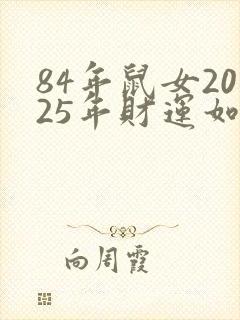 84年鼠女20
25年財運如
向周霞